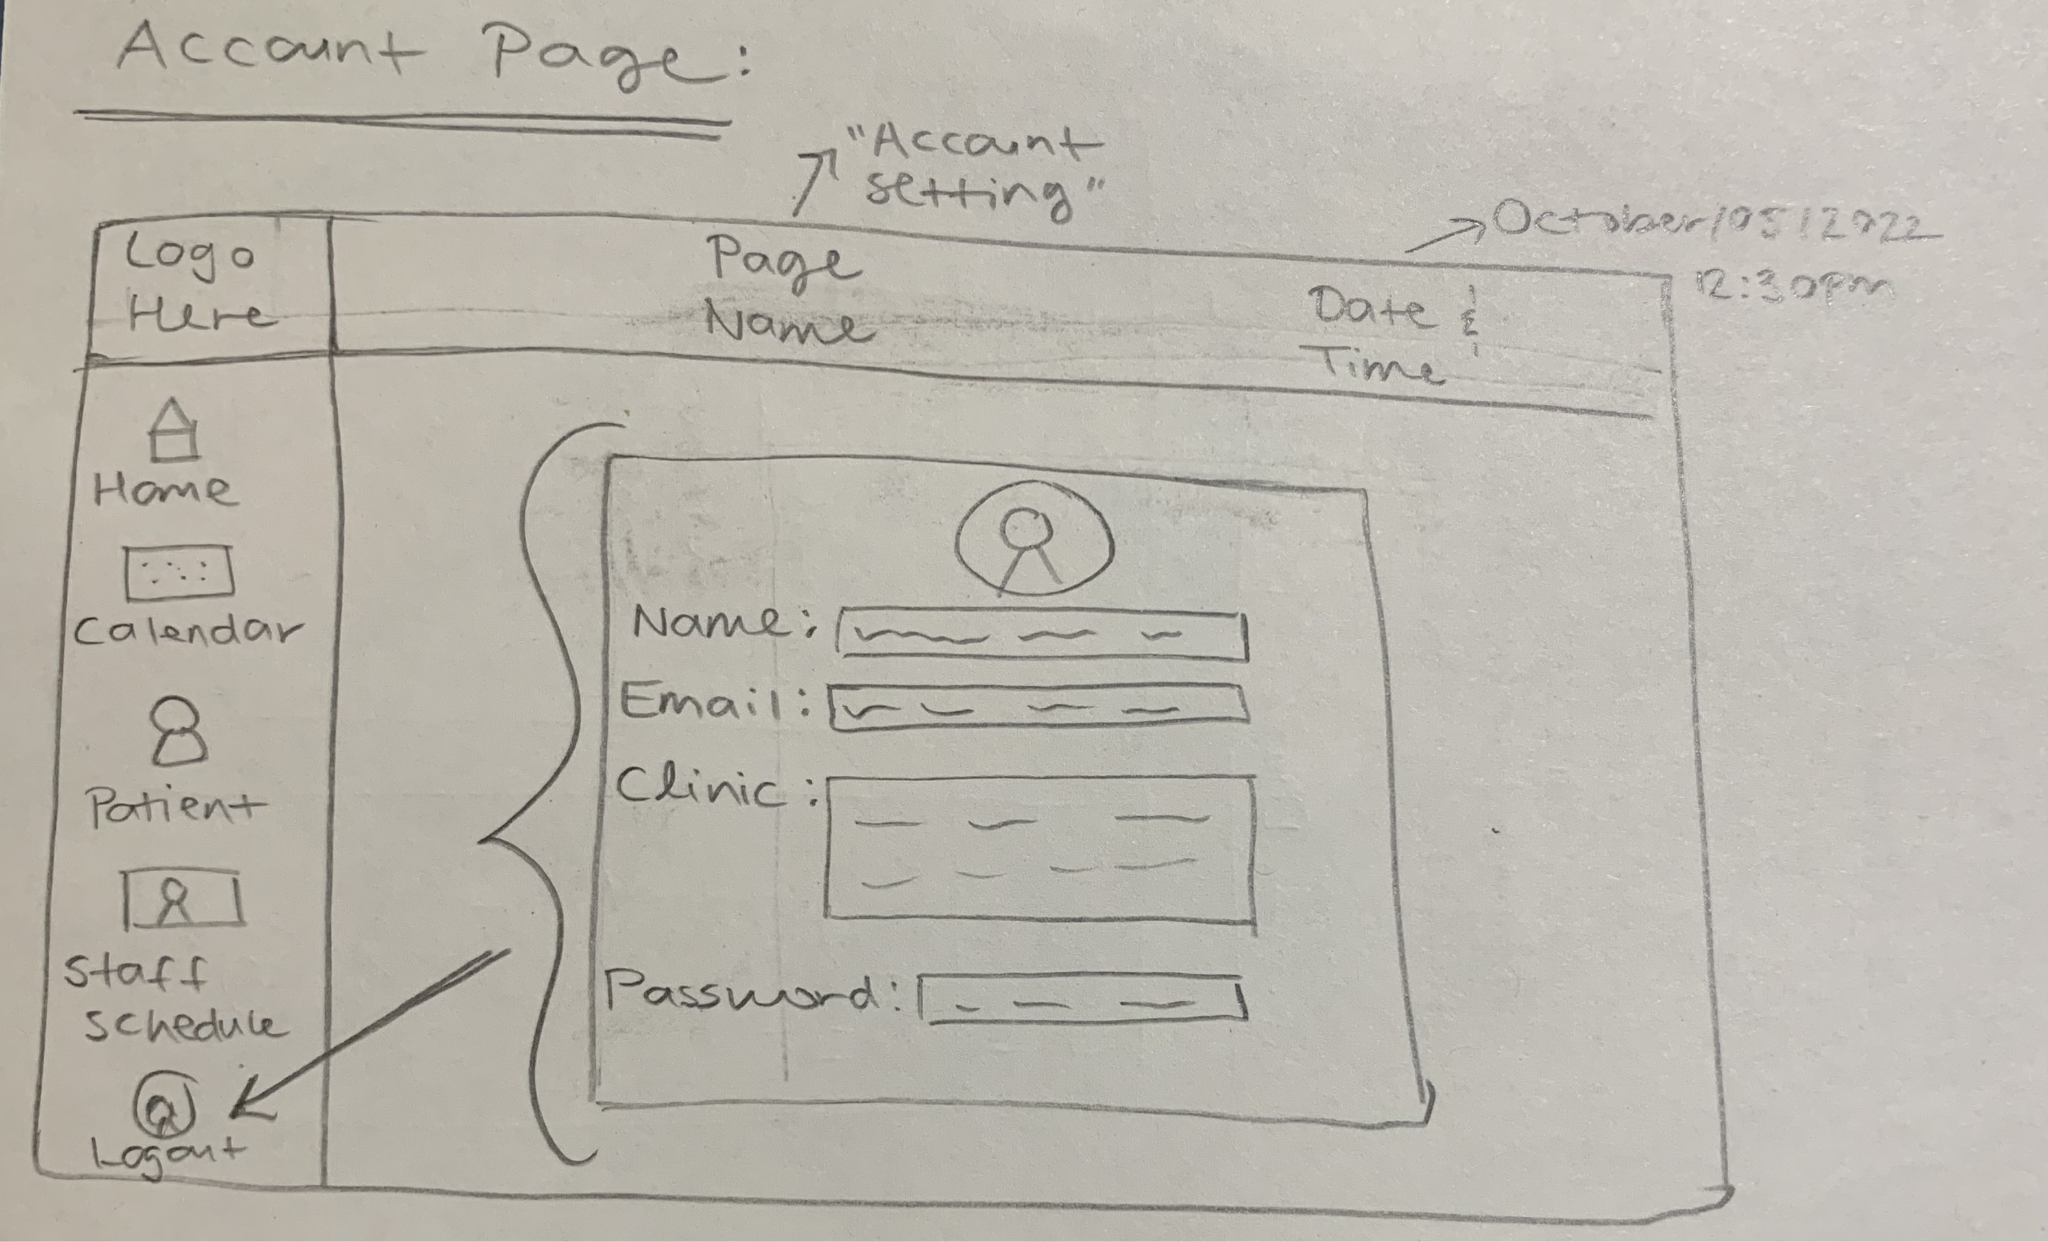 Account Page:
"Account
setting"
October/05/2022
12:30pm
Logo
Here
Page
Name
Date &
Time
Home
Calendar
Patient
Staff
schedule
Logout
Name:
Email:
Clinic:
Password: